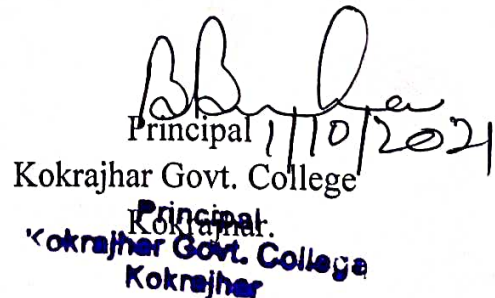 Principal 1/10/2021
Kokrajhar Govt. College
Kokrajhar.
Principal
Kokrajhar Govt. College
Kokrajhar